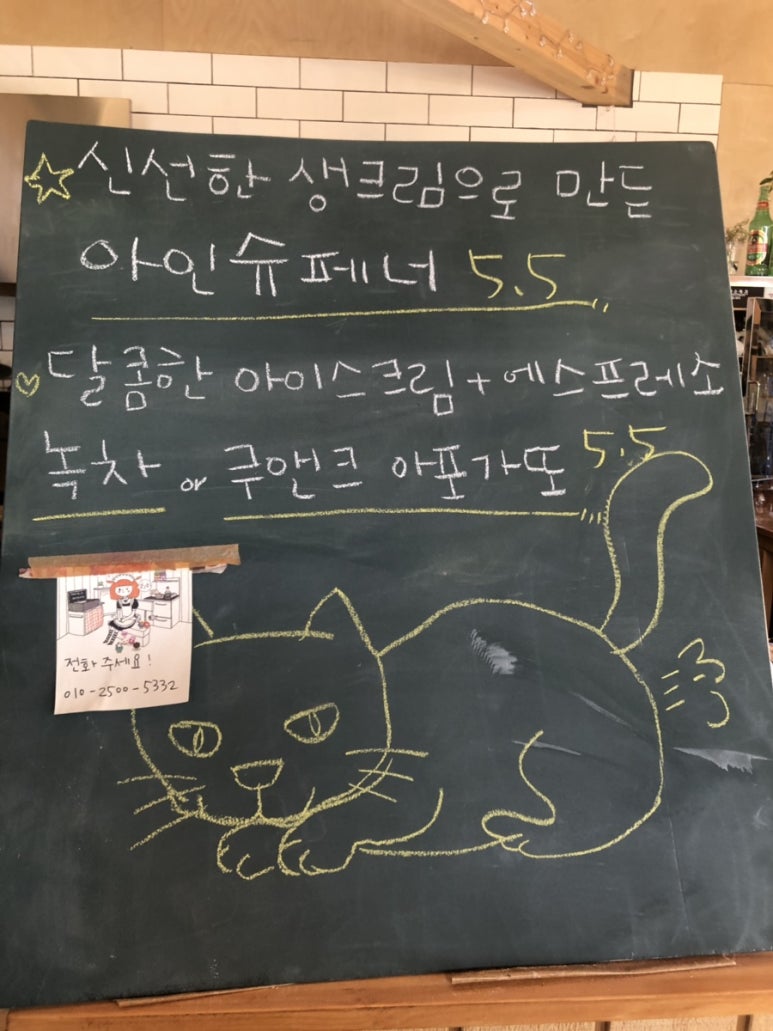 ☆ 신선한 생크림으로 만든
아인슈페너 5.5
♡ 달콤한 아이스크림 + 에스프레소
녹차 or 쿠앤크 아포가또 5.5
전화 주세요!
010-2500-5332